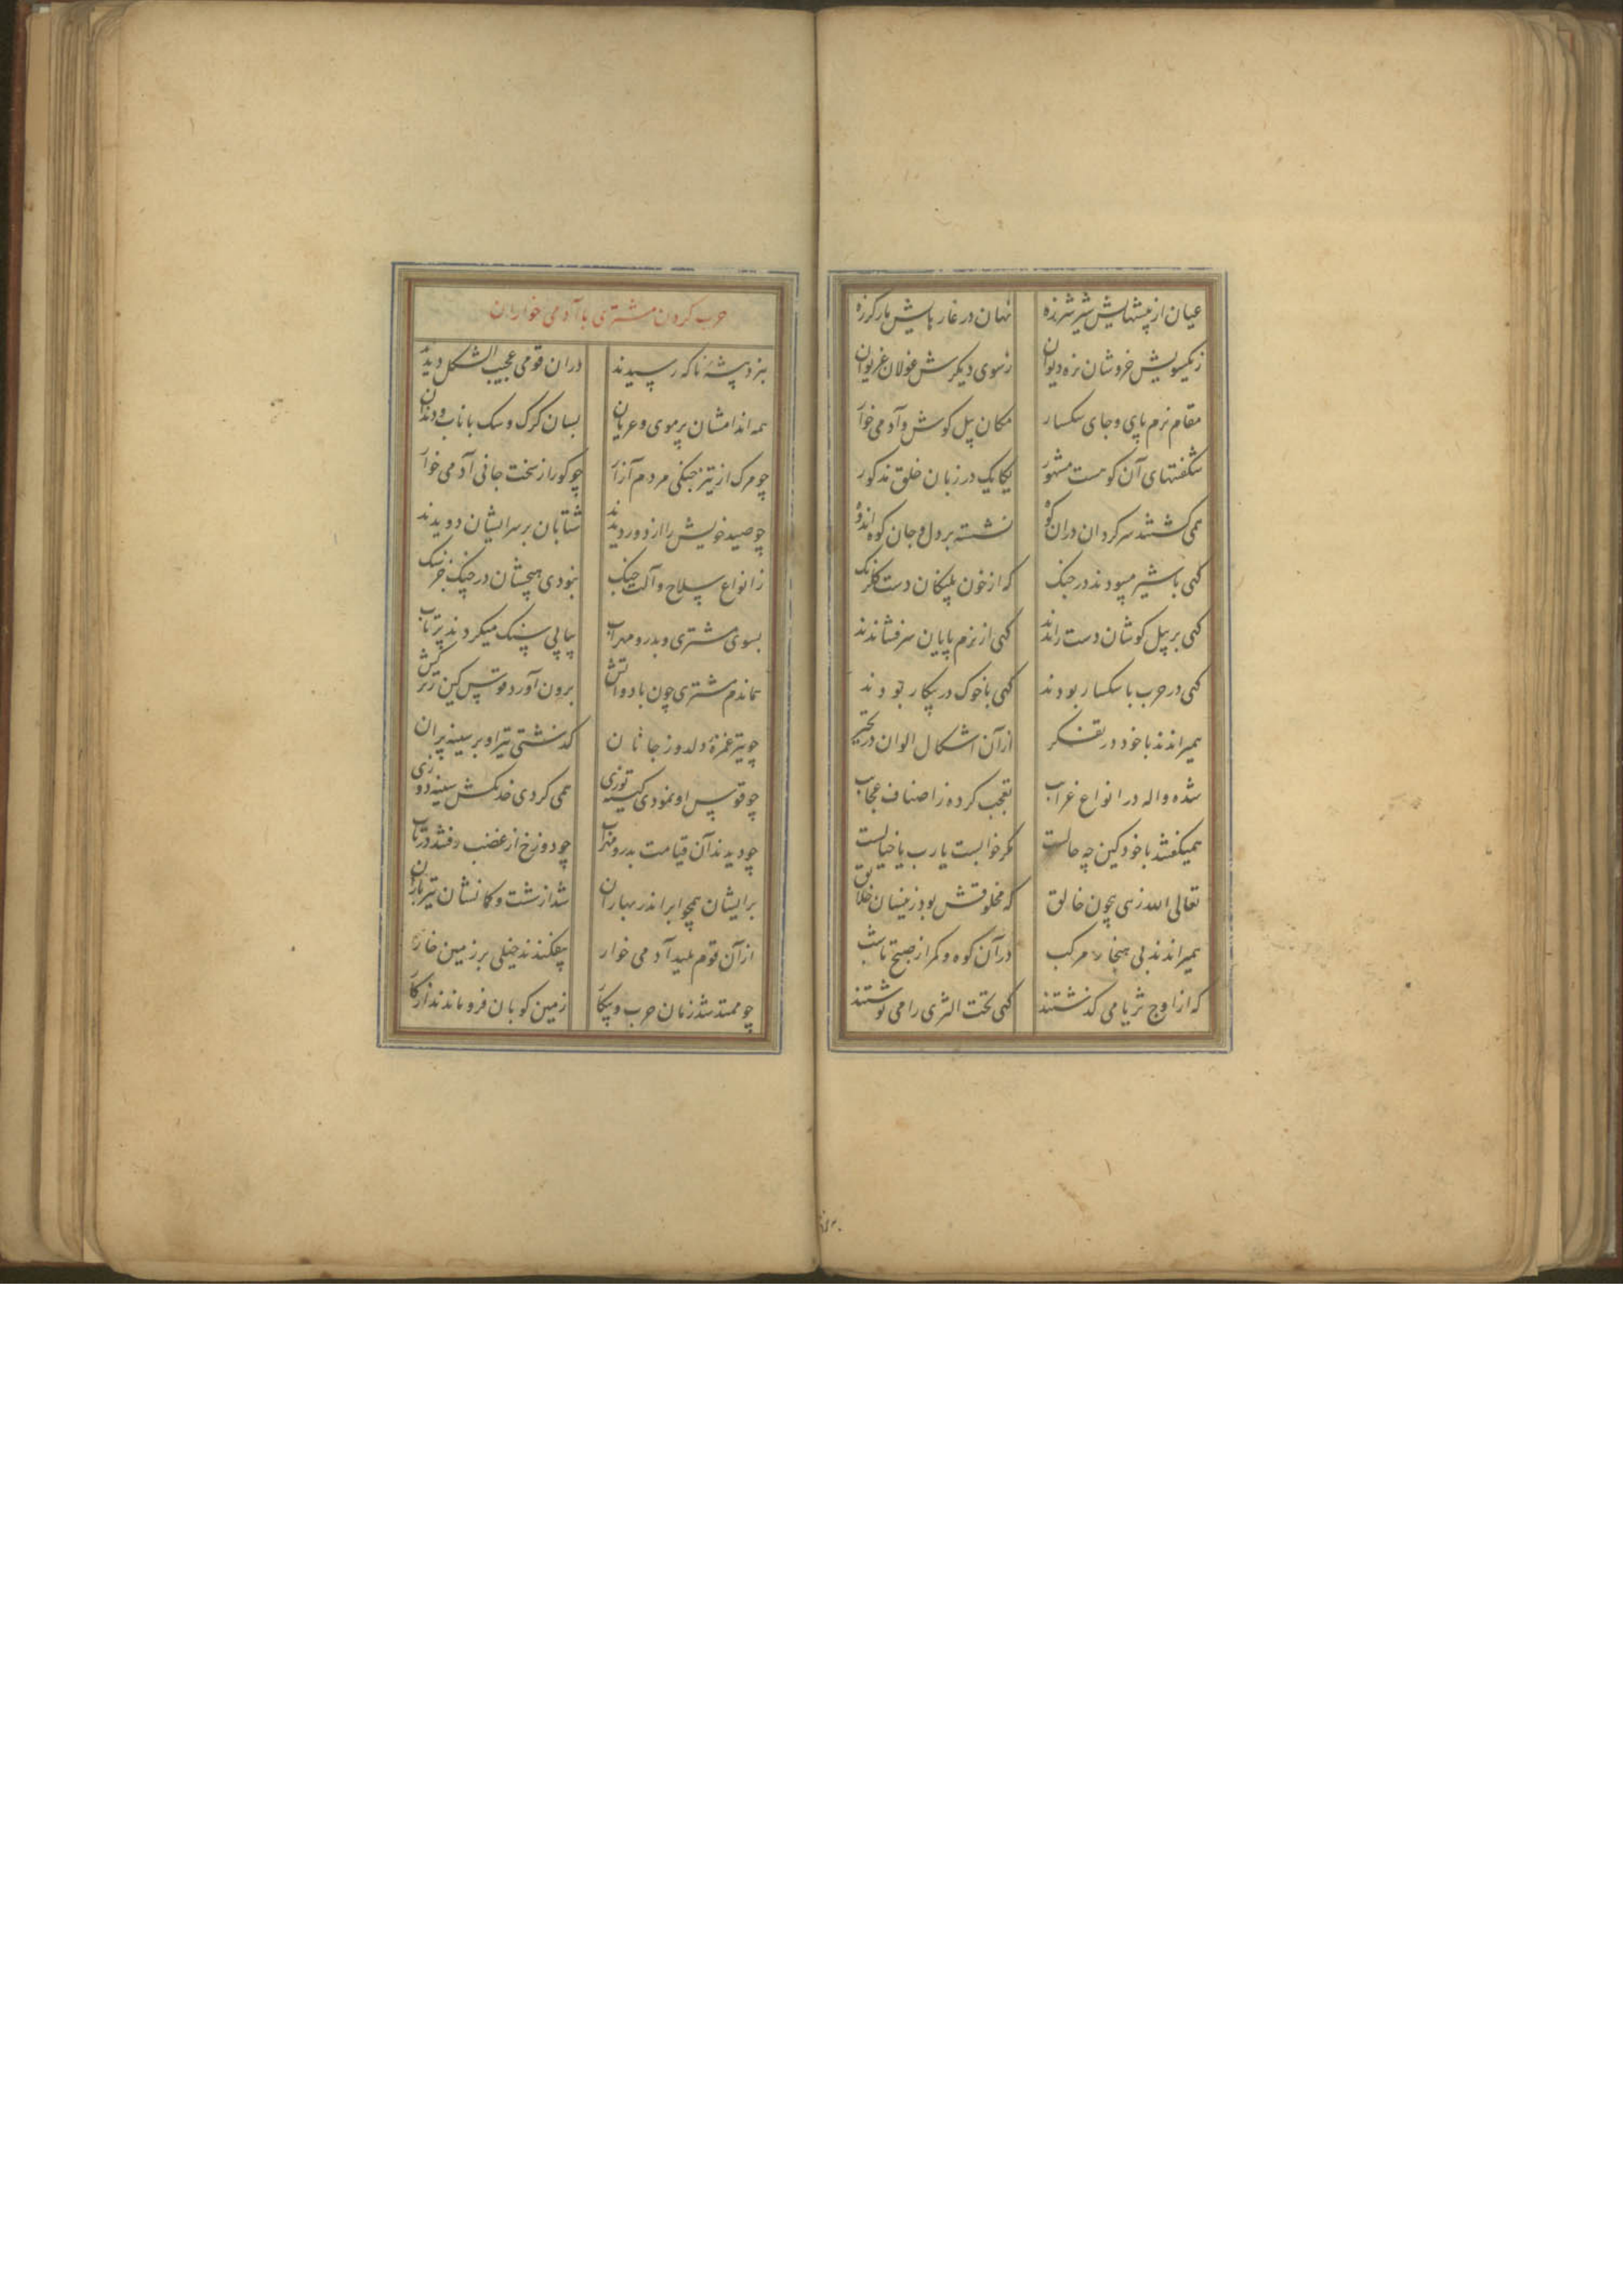 عیان از پیشهایش شیر شرزه نهان در غارهایش مار کرزه
زیکسویش خروشان نره دیوان زسوی دیکرش غولان غریوان
مقام نرم پای و جای سکسار مکان پیل کوش و آدمی خوار
شکفتهای آن کوهست مشهور یکایک در زبان خلق مذکور
همی کشتند سرکردان دران کوه نشسته بر دل و جان کوه اندوه
کهی با شیر میبودند در جنک که از خون پلنکان دست کلرنک
کهی بر پیل کوشان دست راندند کهی از نرم پایان سر فشاندند
کهی در حرب با سکسار بودند کهی با خوک در پیکار بودند
همیراندند با خود در تفکر از آن اشکال الوان در تحیر
شده واله در انواع غرایب تعجب کرده ز اصناف عجایب
همیکفتند با خود کین چه حالست مکر خوابست یا رب یا خیالست
تعالی الله زهی بیچون خالق که مخلوقش بود زینسان خلایق
همیراندند بی هنجار مرکب در آن کوه و کمر از صبح تا شب
که از اوج ثریا می کذشتند کهی تحت الثری را می نوشتند
حرب کردن مشتری با آدمی خواران
بنزد پشتهٔ ناکه رسیدند دران قومی عجیب الشکل دیدند
همه اندامشان پر موی و عریان بسان کرک و سک با ناب و دندان
چو مرک از تیز جنکی مردم آزار چو کور از سخت جانی آدمی خوار
چو صید خویش را از دور دیدند شتابان بر سر ایشان دویدند
ز انواع سلاح و آلت جنک نبودی هیچشان در چنک جز سنک
بسوی مشتری و بدر و مهراب پیاپی سنک میکردند پرتاب
هماندم مشتری چون باد و آتش برون آورد قوس کین ز ترکش
چو تیر غمزهٔ دلدوز جانان کذشتی تیر او بر سینه پران
چو قوس او نمودی کینه توزی همی کردی خدنکش سینه دوزی
چو دیدند آن قیامت بدر و مهراب چو دوزخ از غضب رفتند در تاب
بر ایشان همچو ابر اندر بهاران شد از شست و کمانشان تیر باران
از آن قوم پلید آدمی خوار بیفکندند خیلی بر زمین خار
چو ممتد شد زمان حرب و پیکار زمین کوبان فرو ماندند از کار